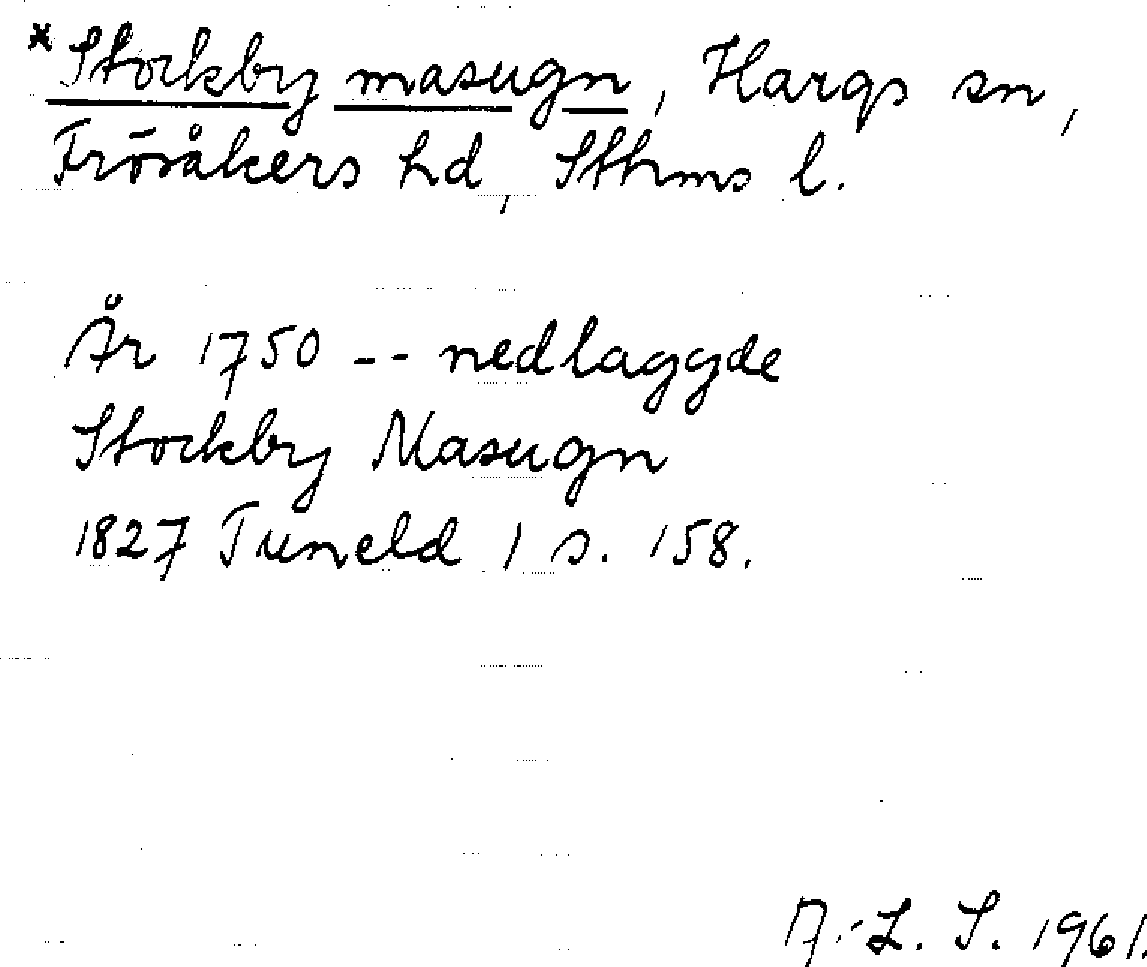 *Stockby masugn, Hargs sn,
Frösåkers hd, Sthms l.
År 1750 -- nedlaggde
Stockby Masugn
1827 Tuneld 1 s. 158.
A.-L. S. 1961.